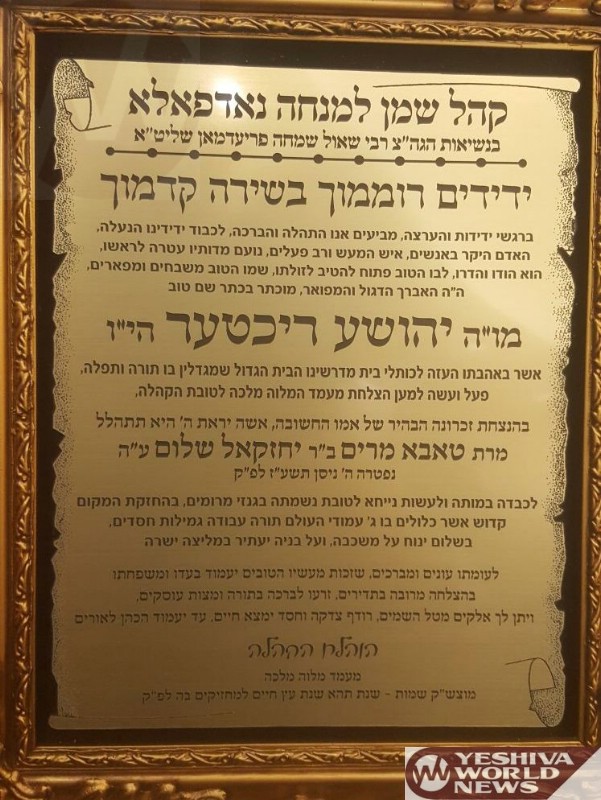 קהל שמן למנחה נאדפאלא
בנשיאות הגה"צ רבי שאול שמחה פריעדמאן שליט"א
ידידים רוממוך בשירה קדמוך
ברגשי ידידות והערצה, מביעים אנו התהלה והברכה, לכבוד ידידינו הנעלה,
האדם היקר באנשים, איש המעש ורב פעלים, נועם מדותיו עטרה לראשו,
הוא הודו והדרו, לבו הטוב פתוח להטיב לזולתו, שמו הטוב משבחים ומפארים,
ה"ה האברך הדגול והמפואר, מוכתר בכתר שם טוב
מו"ה יהושע ריכטער הי"ו
אשר באהבתו העזה לכותלי בית מדרשינו הבית הגדול שמגדלין בו תורה ותפלה,
פעל ועשה למען הצלחת מעמד המלוה מלכה לטובת הקהלה,
בהנצחת זכרונה הבהיר של אמו החשובה, אשה יראת ה' היא תתהלל
מרת טאבא מרים ב"ר יחזקאל שלום ע"ה
נפטרה ה' ניסן תשע"ז לפ"ק
לכבדה במותה ולעשות נייחא לטובת נשמתה בגנזי מרומים, בהחזקת המקום
קדוש אשר כלולים בו ג' עמודי העולם תורה עבודה גמילות חסדים,
בשלום ינוח על משכבה, ועל בניה יעתיר במליצה ישרה
לעומתו עונים ומברכים, שזכות מעשיו הטובים יעמוד בעדו ומשפחתו
בהצלחה מרובה בתדירים, זרעו לברכה בתורה ומצות עוסקים,
ויתן לך אלקים מטל השמים, רודף צדקה וחסד ימצא חיים, עד יעמוד הכהן לאורים
הנהלת הקהלה
מעמד מלוה מלכה
מוצש"ק שמות - שנת תהא שנת עץ חיים למחזיקים בה לפ"ק
YESHIVA
WORLD
NEWS